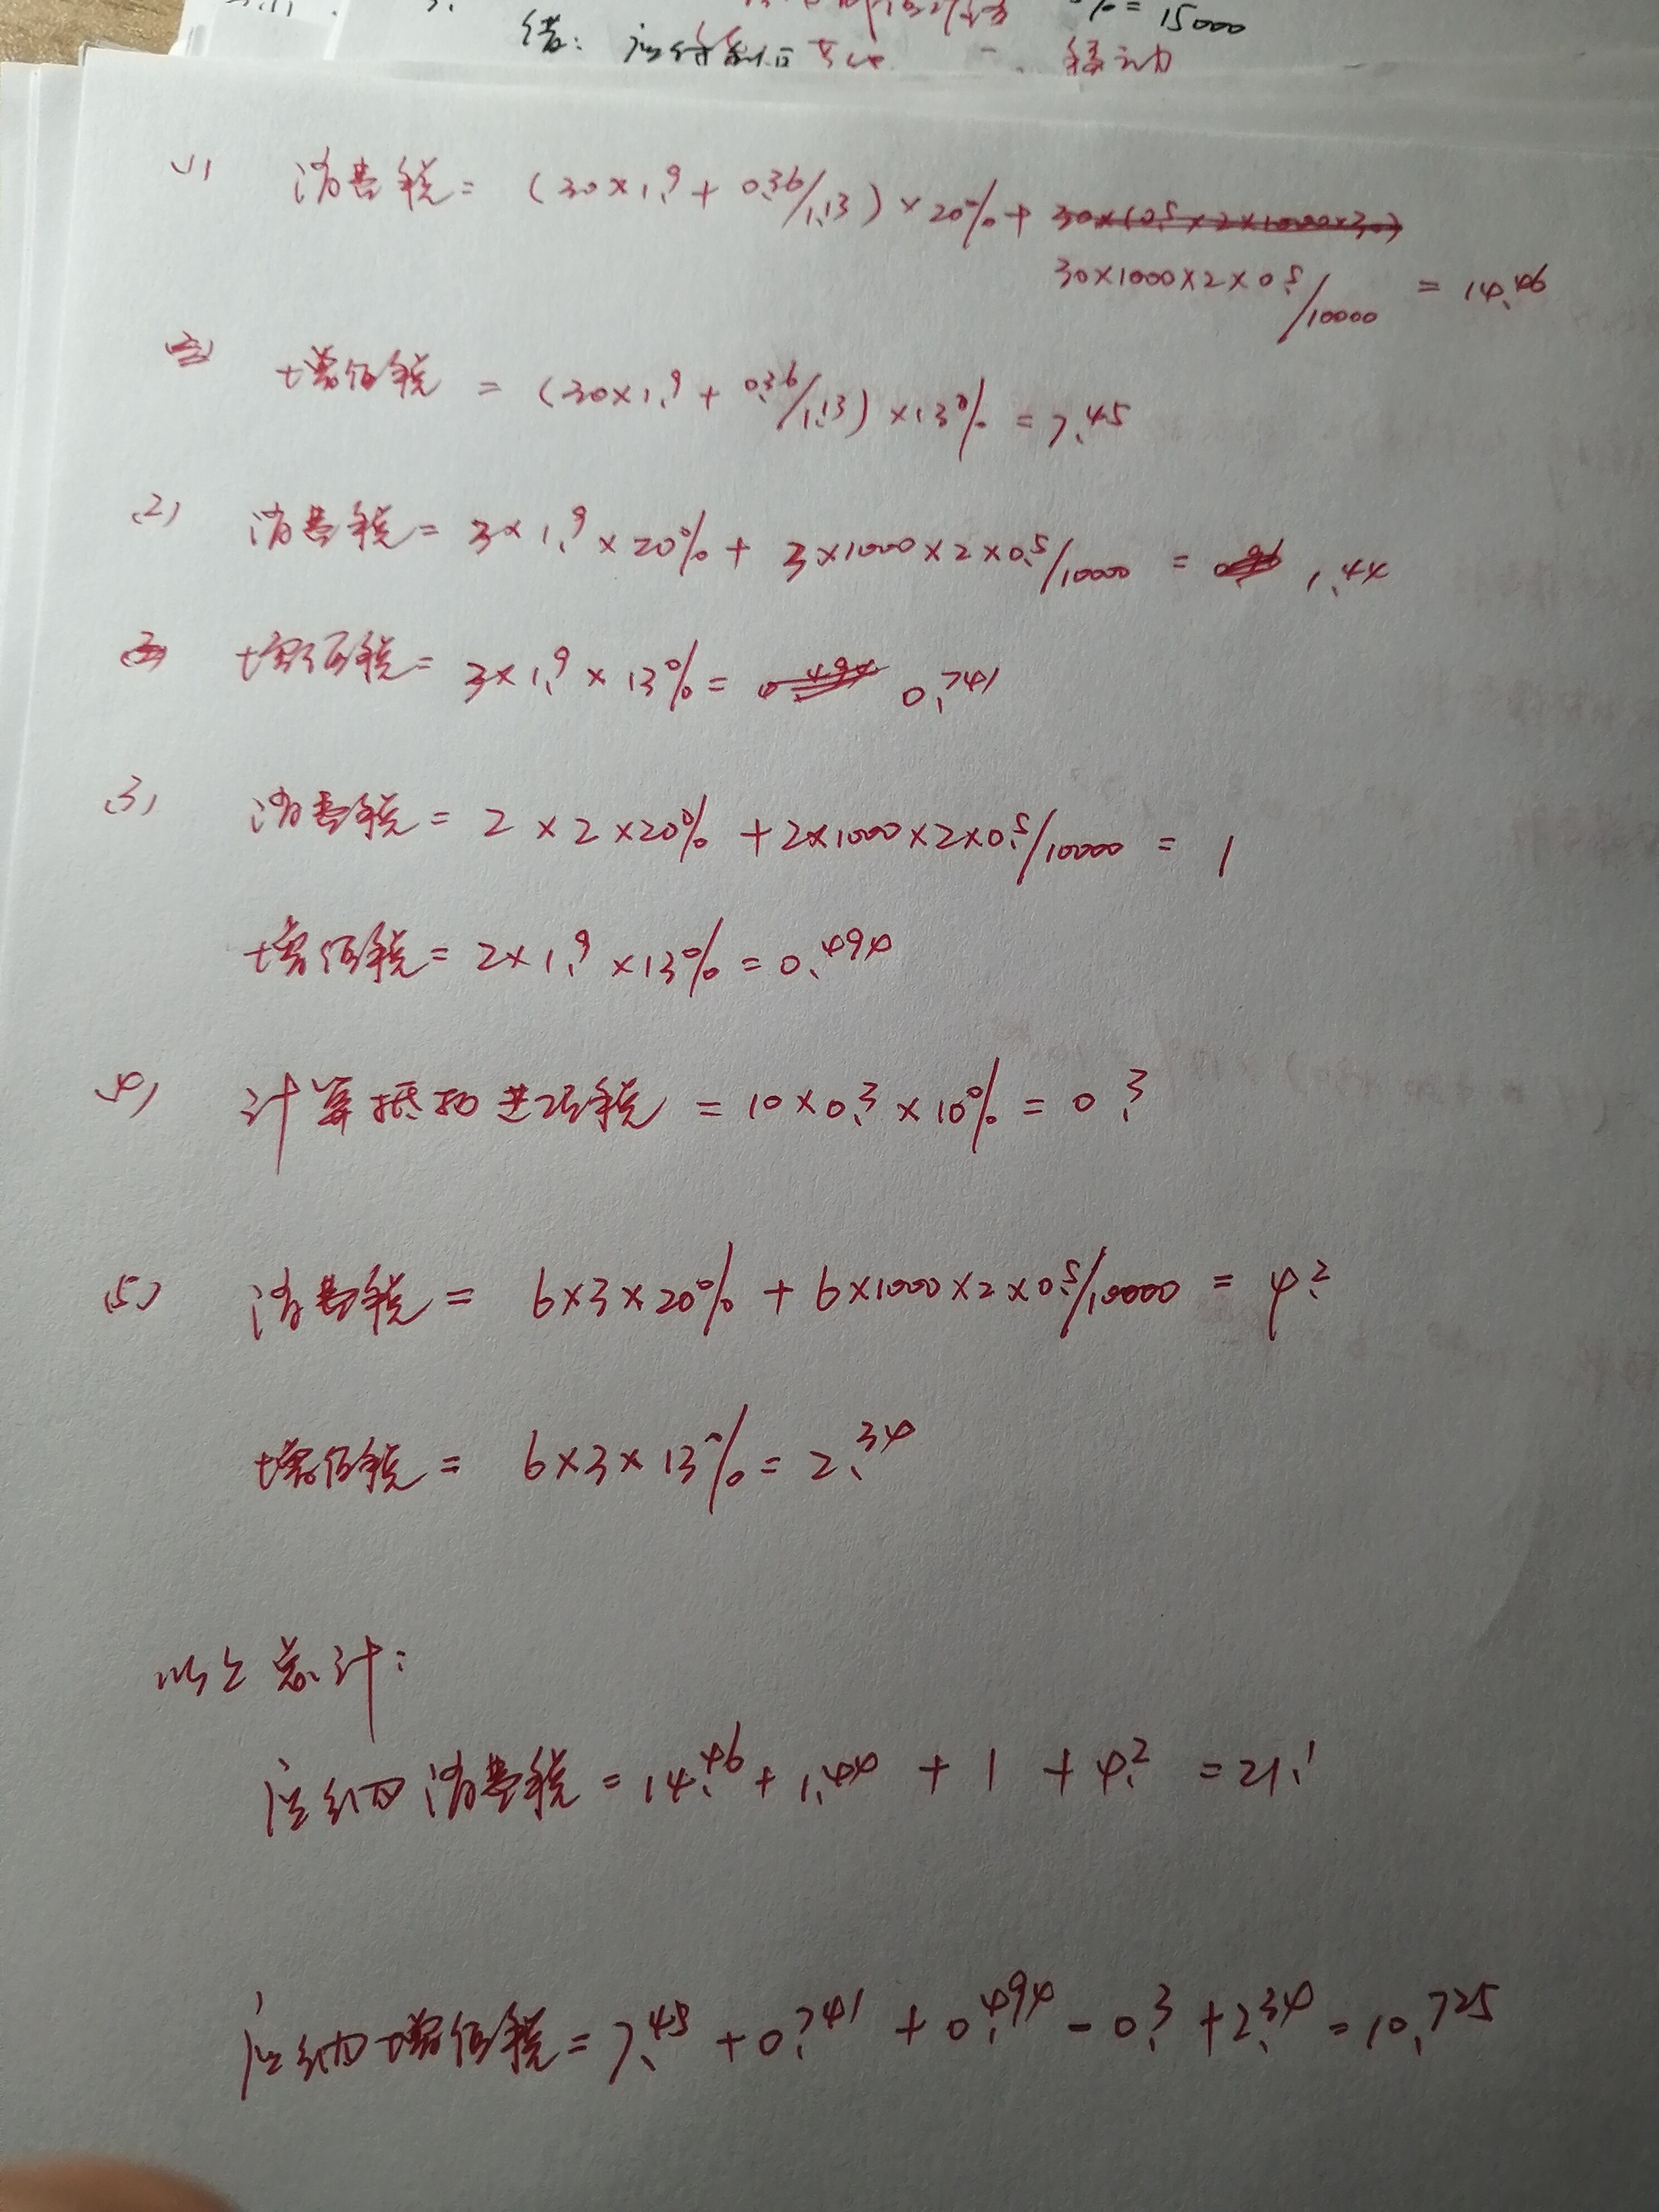 % = 15000
(1) 消费税 = (30×1.9 + 0.36/1.13) × 20% +
30×1000×2×0.5/10000 = 14.46
增值税 = (30×1.9 + 0.36/1.13) ×13% = 7.45
(2) 消费税 = 3×1.9×20% + 3×1000×2×0.5/10000 = 1.44
增值税 = 3×1.9×13% = 0.741
(3) 消费税 = 2×2×20% + 2×1000×2×0.5/10000 = 1
增值税 = 2×1.9×13% = 0.494
(4) 计算抵扣进项税 = 10×0.3×10% = 0.3
(5) 消费税 = 6×3×20% + 6×1000×2×0.5/10000 = 4.2
增值税 = 6×3×13% = 2.34
以上总计:
应纳消费税 = 14.46 + 1.44 + 1 + 4.2 = 21.1
应纳增值税 = 7.45 + 0.741 + 0.494 - 0.3 + 2.34 = 10.725